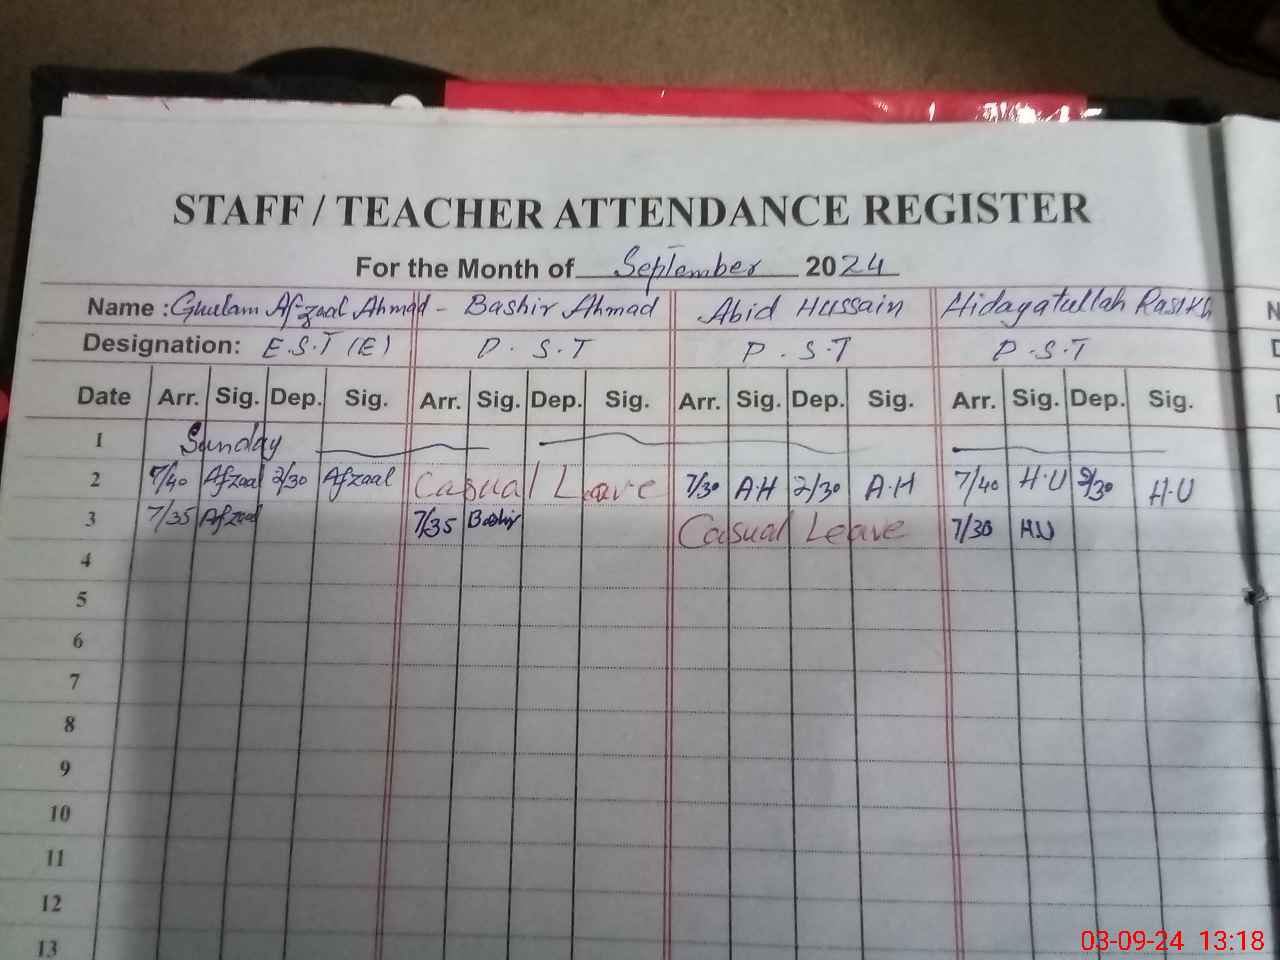 STAFF / TEACHER ATTENDANCE REGISTER
For the Month of September 2024
Name : Ghulam Afzaal Ahmad - Bashir Ahmad Abid Hussain Hidayatullah Rasikh
Designation: E.S.T (E) P. S. T P. S. T P. S. T
Date Arr. Sig. Dep. Sig. Arr. Sig. Dep. Sig. Arr. Sig. Dep. Sig. Arr. Sig. Dep. Sig.
1 Sunday
2 7/40 Afzaal 2/30 Afzaal Casual Leave 7/30 A.H 2/30 A.H 7/40 H.U 2/30 H.U
3 7/35 Afzaal 7/35 Bashir Casual Leave 7/30 H.U
4
5
6
7
8
9
10
11
12
13
03-09-24 13:18